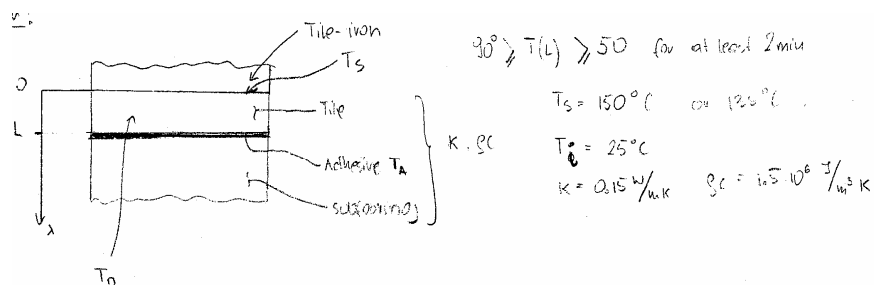 Tile-iron
Ts
0
Tile
L
Adhesive TA
subflooring
x
90° ≥ T(L) ≥ 50 for at least 2 min
Ts = 150°C or 125°C.
K. ρC
Ti = 25°C
K = 0.15 W/mK ρC = 1.5·10⁶ J/m³ K